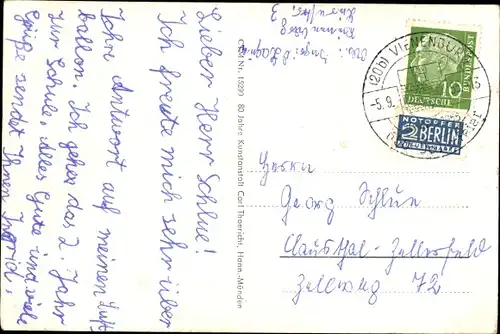 Lieber Herr Schlue!
Ich freute mich sehr über
Ihre Antwort auf meinen Luft-
ballon. Ich gehe das 2. Jahr
zur Schule. Alles Gute und viele
Grüße sendet Ihnen Ingrid.
CTHM Nr. 15299 80 Jahre Kunstanstalt Carl Thoericht, Hann.-Münden
Abs.: Inge
(20b) VIENENBURG
-5.9.
10
DEUTSCHE
BUNDESPOST
NOTOPFER
2 BERLIN
STEUERMARKE
Herrn
Georg Schlue
Clausthal-Zellerfeld
Zellweg 72